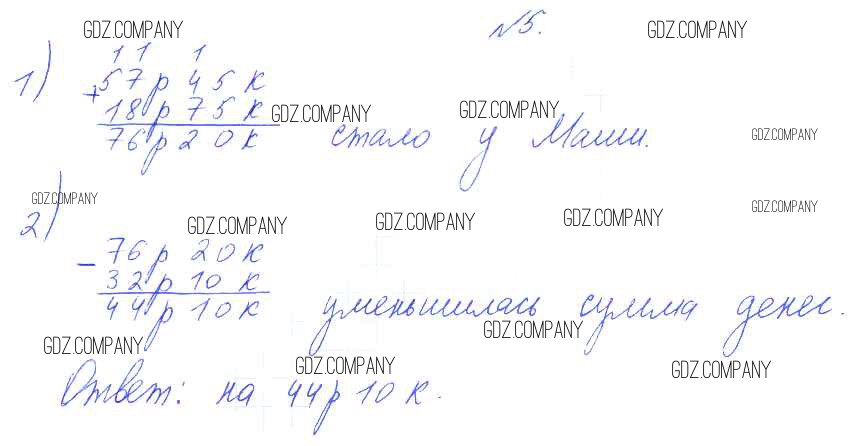 GDZ.COMPANY №5. GDZ.COMPANY
11 1
1) + 57р 45к
18р 75к GDZ.COMPANY GDZ.COMPANY
76р 20к стало у Маши. GDZ.COMPANY
GDZ.COMPANY GDZ.COMPANY
2) GDZ.COMPANY GDZ.COMPANY GDZ.COMPANY
- 76р 20к
32р 10к
44р 10к уменьшилась сумма денег.
GDZ.COMPANY GDZ.COMPANY
GDZ.COMPANY GDZ.COMPANY
Ответ: на 44р 10к.